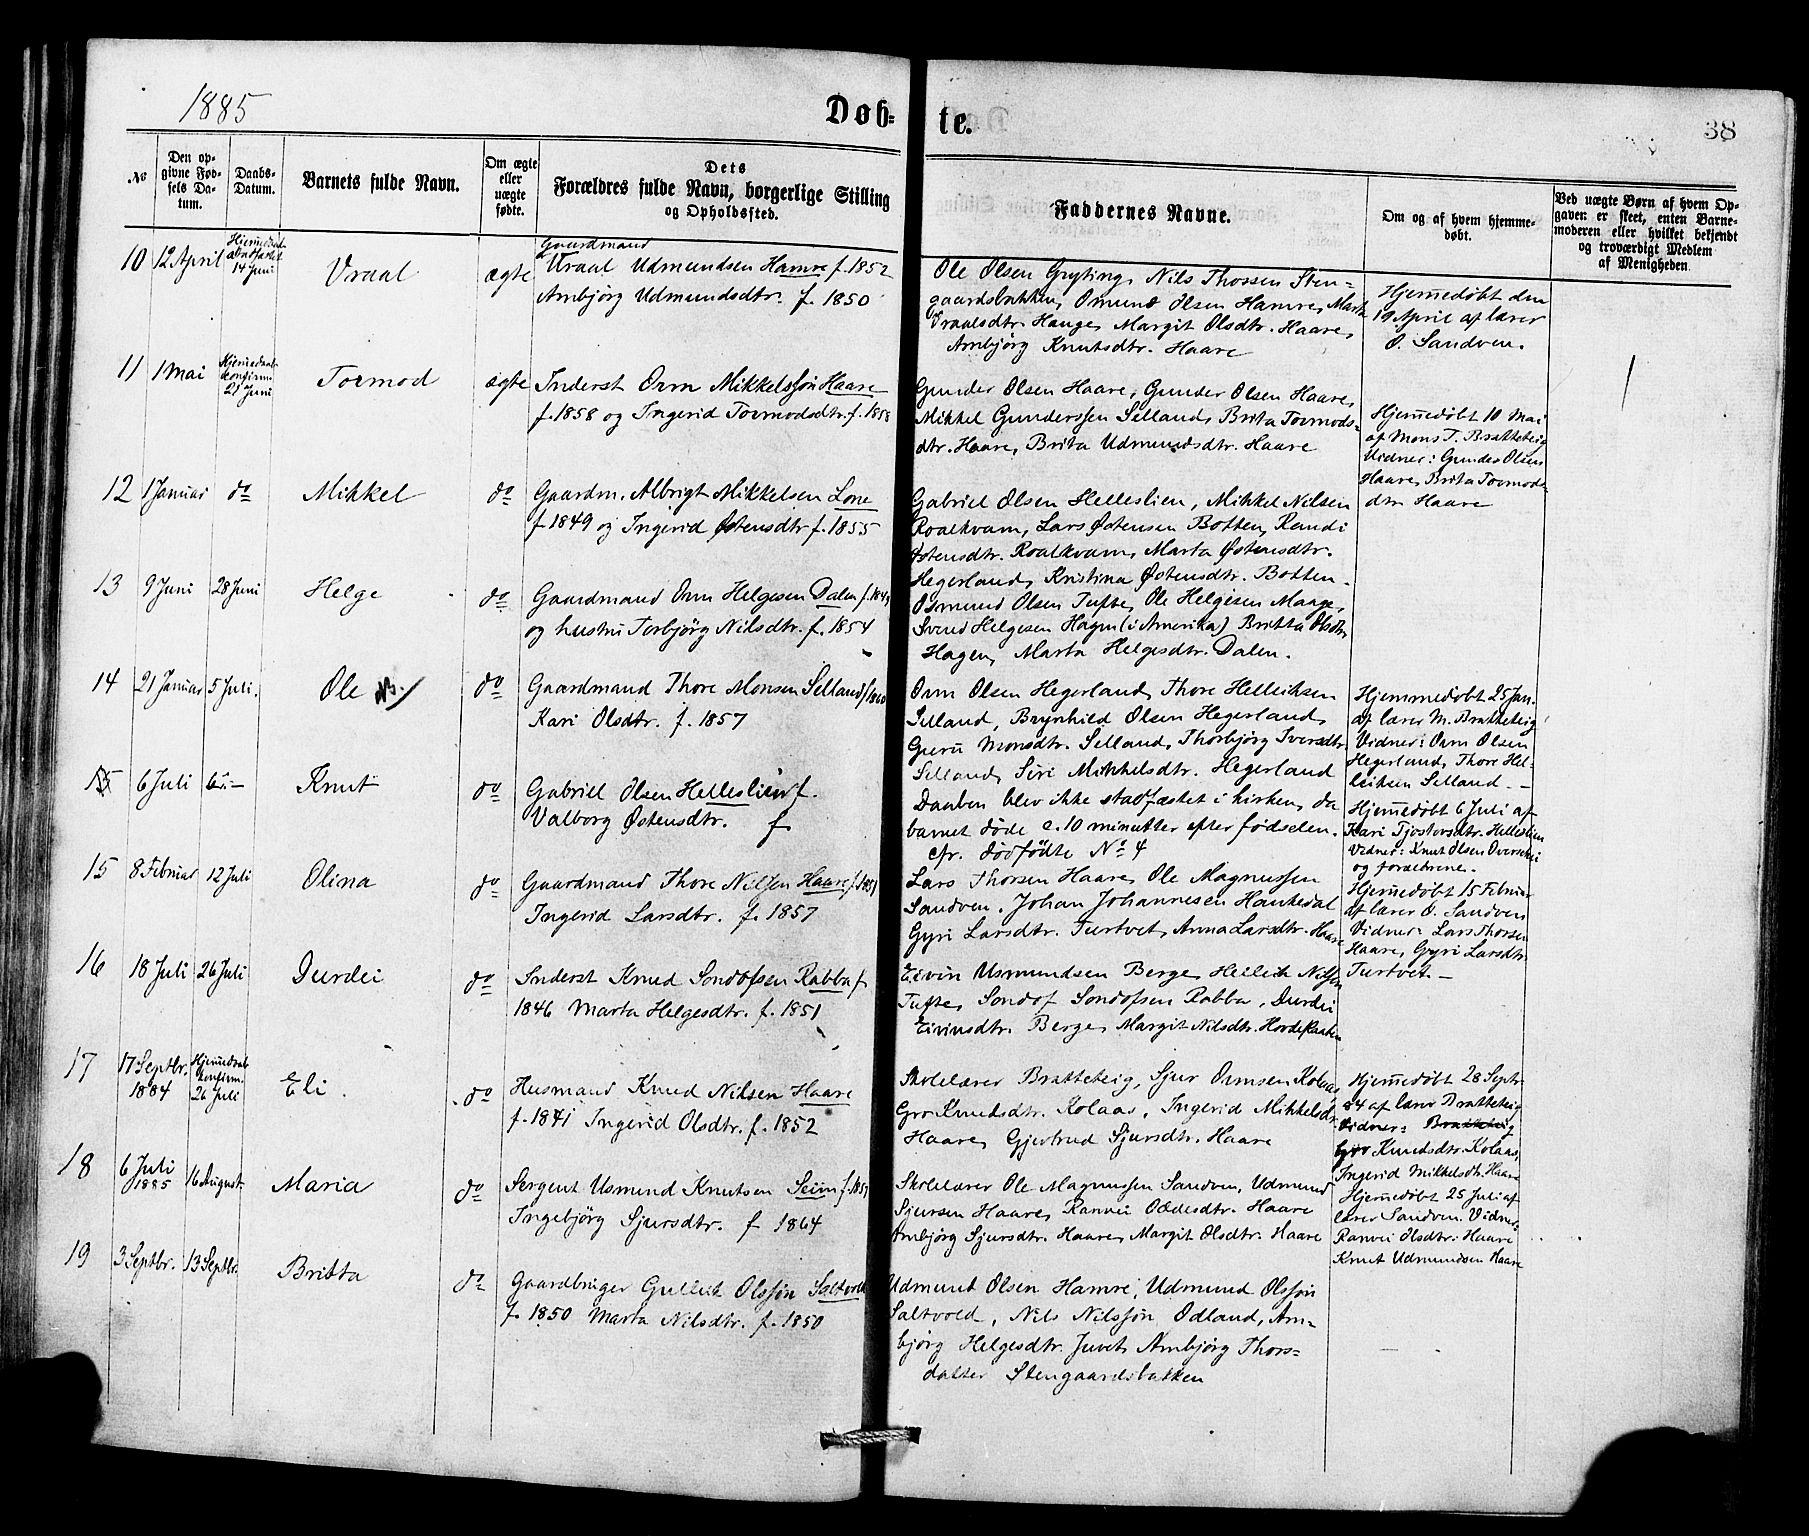 1885
Døbte.
38
No
Den opgivne Fødsels Datum.
Daabs-Datum.
Barnets fulde Navn.
Om ægte eller uægte fødte.
Dets Forældres fulde Navn, borgerlige Stilling og Opholdssted.
Faddernes Navne.
Om og af hvem hjemmedøbt.
Ved uægte Børn af hvem Opgaven er skeet, enten Barnemoderen eller hvilket bekjendt og troværdigt Medlem af Menigheden.
10 12 April
14 Juni
Vraal
ægte
Gaardmand
Vraal Udmundsen Hamre f. 1852
Ambjørg Udmundsdtr. f. 1850
Ole Olsen Gryting, Nils Thossen Sten-
gaardsbakken, Omund Olsen Hamre, Marta
Vraalsdtr. Hauge, Margit Olsdtr. Haare,
Ambjørg Knutsdtr. Haare
Hjem̄edøbt den
19 April af lærer
O. Sandven.
11 1 Mai
Hjem̄edaab
konfirm.
21 Juni
Tormod
ægte
Inderst Orm Mikkelssøn Haare
f. 1858 og Ingerid Tormodsdtr. f. 1858
Gunder Olsen Haare, Gunder Olsen Haare,
Mikkel Gunderssen Selland, Brita Tormods-
dtr. Haare, Brita Udmundsdtr. Haare
Hjem̄edøbt 10 Mai
af Mons T. Bratteteig
Vidner: Gunder Olsen
Haare, Brita Tormods-
dtr. Haare
12 1 Januar do
Mikkel
do
Gaardm. Albrigt Mikkelsen Lone
f. 1849 og Ingerid Østensdtr f. 1855
Gabriel Olsen Helleslien, Mikkel Nilsen
Roalkvam, Lars Østensen Botten, Randi
Østensdtr. Roalkvam, Marta Østensdtr.
Hegerland, Kristina Østensdtr. Botten.
13 9 Juni 28 Juni
Helge
do
Gaardmand Orm Helgesen Dalen
og hustru Torbjørg Nilsdtr. f. 1854
Osmund Olsen Tufte, Ole Helgesen Maage,
Svend Helgesen Hagen (i Amerika) Britta Olsdtr.
Hagen, Marta Helgesdtr. Dalen.
14 21 Januar 5 Juli.
Ole
do
Gaardmand Thore Monsen Selland f 1860
Kari Olsdtr. f. 1857
Orm Olsen Hegerland, Thore Helleiksen
Selland, Brynhild Olsen Hegerland,
Guru Monsdtr. Selland, Thorbjørg Iversdtr.
Selland, Siri Mikkelsdtr. Hegerland
Hjemmedøbt 25 Jan.
af lærer M. Bratteteig
Vidner: Orm Olsen
Hegerland, Thore Hel-
leiksen Selland. —
15 6 Juli
Knut
do
Gabriel Olsen Helleslien f.
Valborg Østensdtr. f
Daaben blev ikke stadfæstet i kirken, da
barnet døde c. 10 minutter efter fødselen.
cfr. dødfødte No 4
Hjem̄edøbt 6 Juli af
Kari Tjostovsdtr. Helleslien
Vidner: Knut Olsen
og forældrene.
15 8 Februar 12 Juli
Olina
do
Gaardmand Thore Nilssen Haare f. 1851
Ingerid Larsdtr. f. 1857
Lars Thorsen Haare, Ole Magnussen
Sandven, Johan Johannesen Haukedal
Gyri Larsdtr. Turtvet, Anna Larsdtr. Haare
Hjem̄edøbt 15 Februar
af lærer O. Sandven
Vidner: Lars Thorsen
Haare, Gyri Larsdtr.
Turtvet. —
16 18 Juli 26 Juli
Durdei
do
Inderst Knud Sondofsen Rabba f
1846 Marta Helgesdtr. f. 1851
Eivin Usmundsen Berge, Helleik Nilssen
Tufte, Sondof Sondofsen Rabba, Durdei
Eivinsdtr. Berge, Margit Nilsdtr.
17 17 Septbr.
1884
Hjem̄edaab
konfirm.
26 Juli
Eli
do
Husmand Knud Nilsen Haare
f. 1841 Ingerid Olsdtr. f. 1852
Skolelærer Bratteteig, Sjur Ormsen Kolaas
Gro Knudsdtr. Kolaas, Ingerid Mikkelsdtr.
Haare, Gjertrud Sjursdtr. Haare
Hjem̄edøbt 28 Septr.
84 af lærer Bratteteig
Vidner: Bratteteig
Gro Knudsdtr. Kolaas,
Ingerid Mikkelsdtr. Haare
18 6 Juli
1885
16 August.
Maria
do
Sergent Usmund Knutsen Seim
Ingebjørg Sjursdtr. f 1864
Skolelærer Ole Magnussen Sandven, Udmund
Sjursen Haare, Ranvei Oddesdtr. Haare
Ambjørg Sjursdtr. Haare, Margit Olsdtr. Haare
Hjem̄edøbt 25 Juli af
lærer Sandven. Vidner:
Ranvei Olsdtr. Haare
Knut Udmundsen Haare
19 3 Septbr. 13 Septbr.
Britta
do
Gaardbruger Gulleik Olssøn Saltvold
f. 1850 Marta Nilsdtr. f. 1850
Udmund Olsen Hamre, Udmund Olssøn
Saltvold, Nils Nilssøn Odland, Am-
bjørg Helgesdtr. Juvet, Ambjørg Thors-
datter Stengaardsbakken